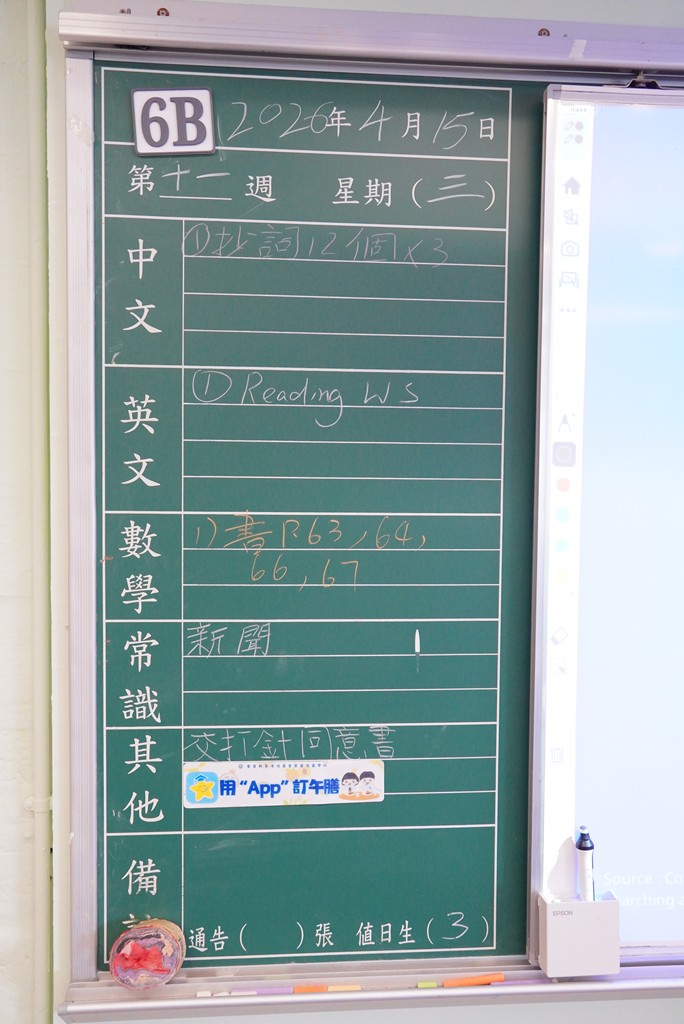 6B 2026年4月15日
第十一週 星期(三)
中文
①抄詞12個x3
英文
① Reading WS
數學
1) 書P.63, 64,
66, 67
常識
新聞
其他
交打針同意書
用“App”訂午膳
備
通告( )張 值日生(3)
EPSON
Source : Co
arching a